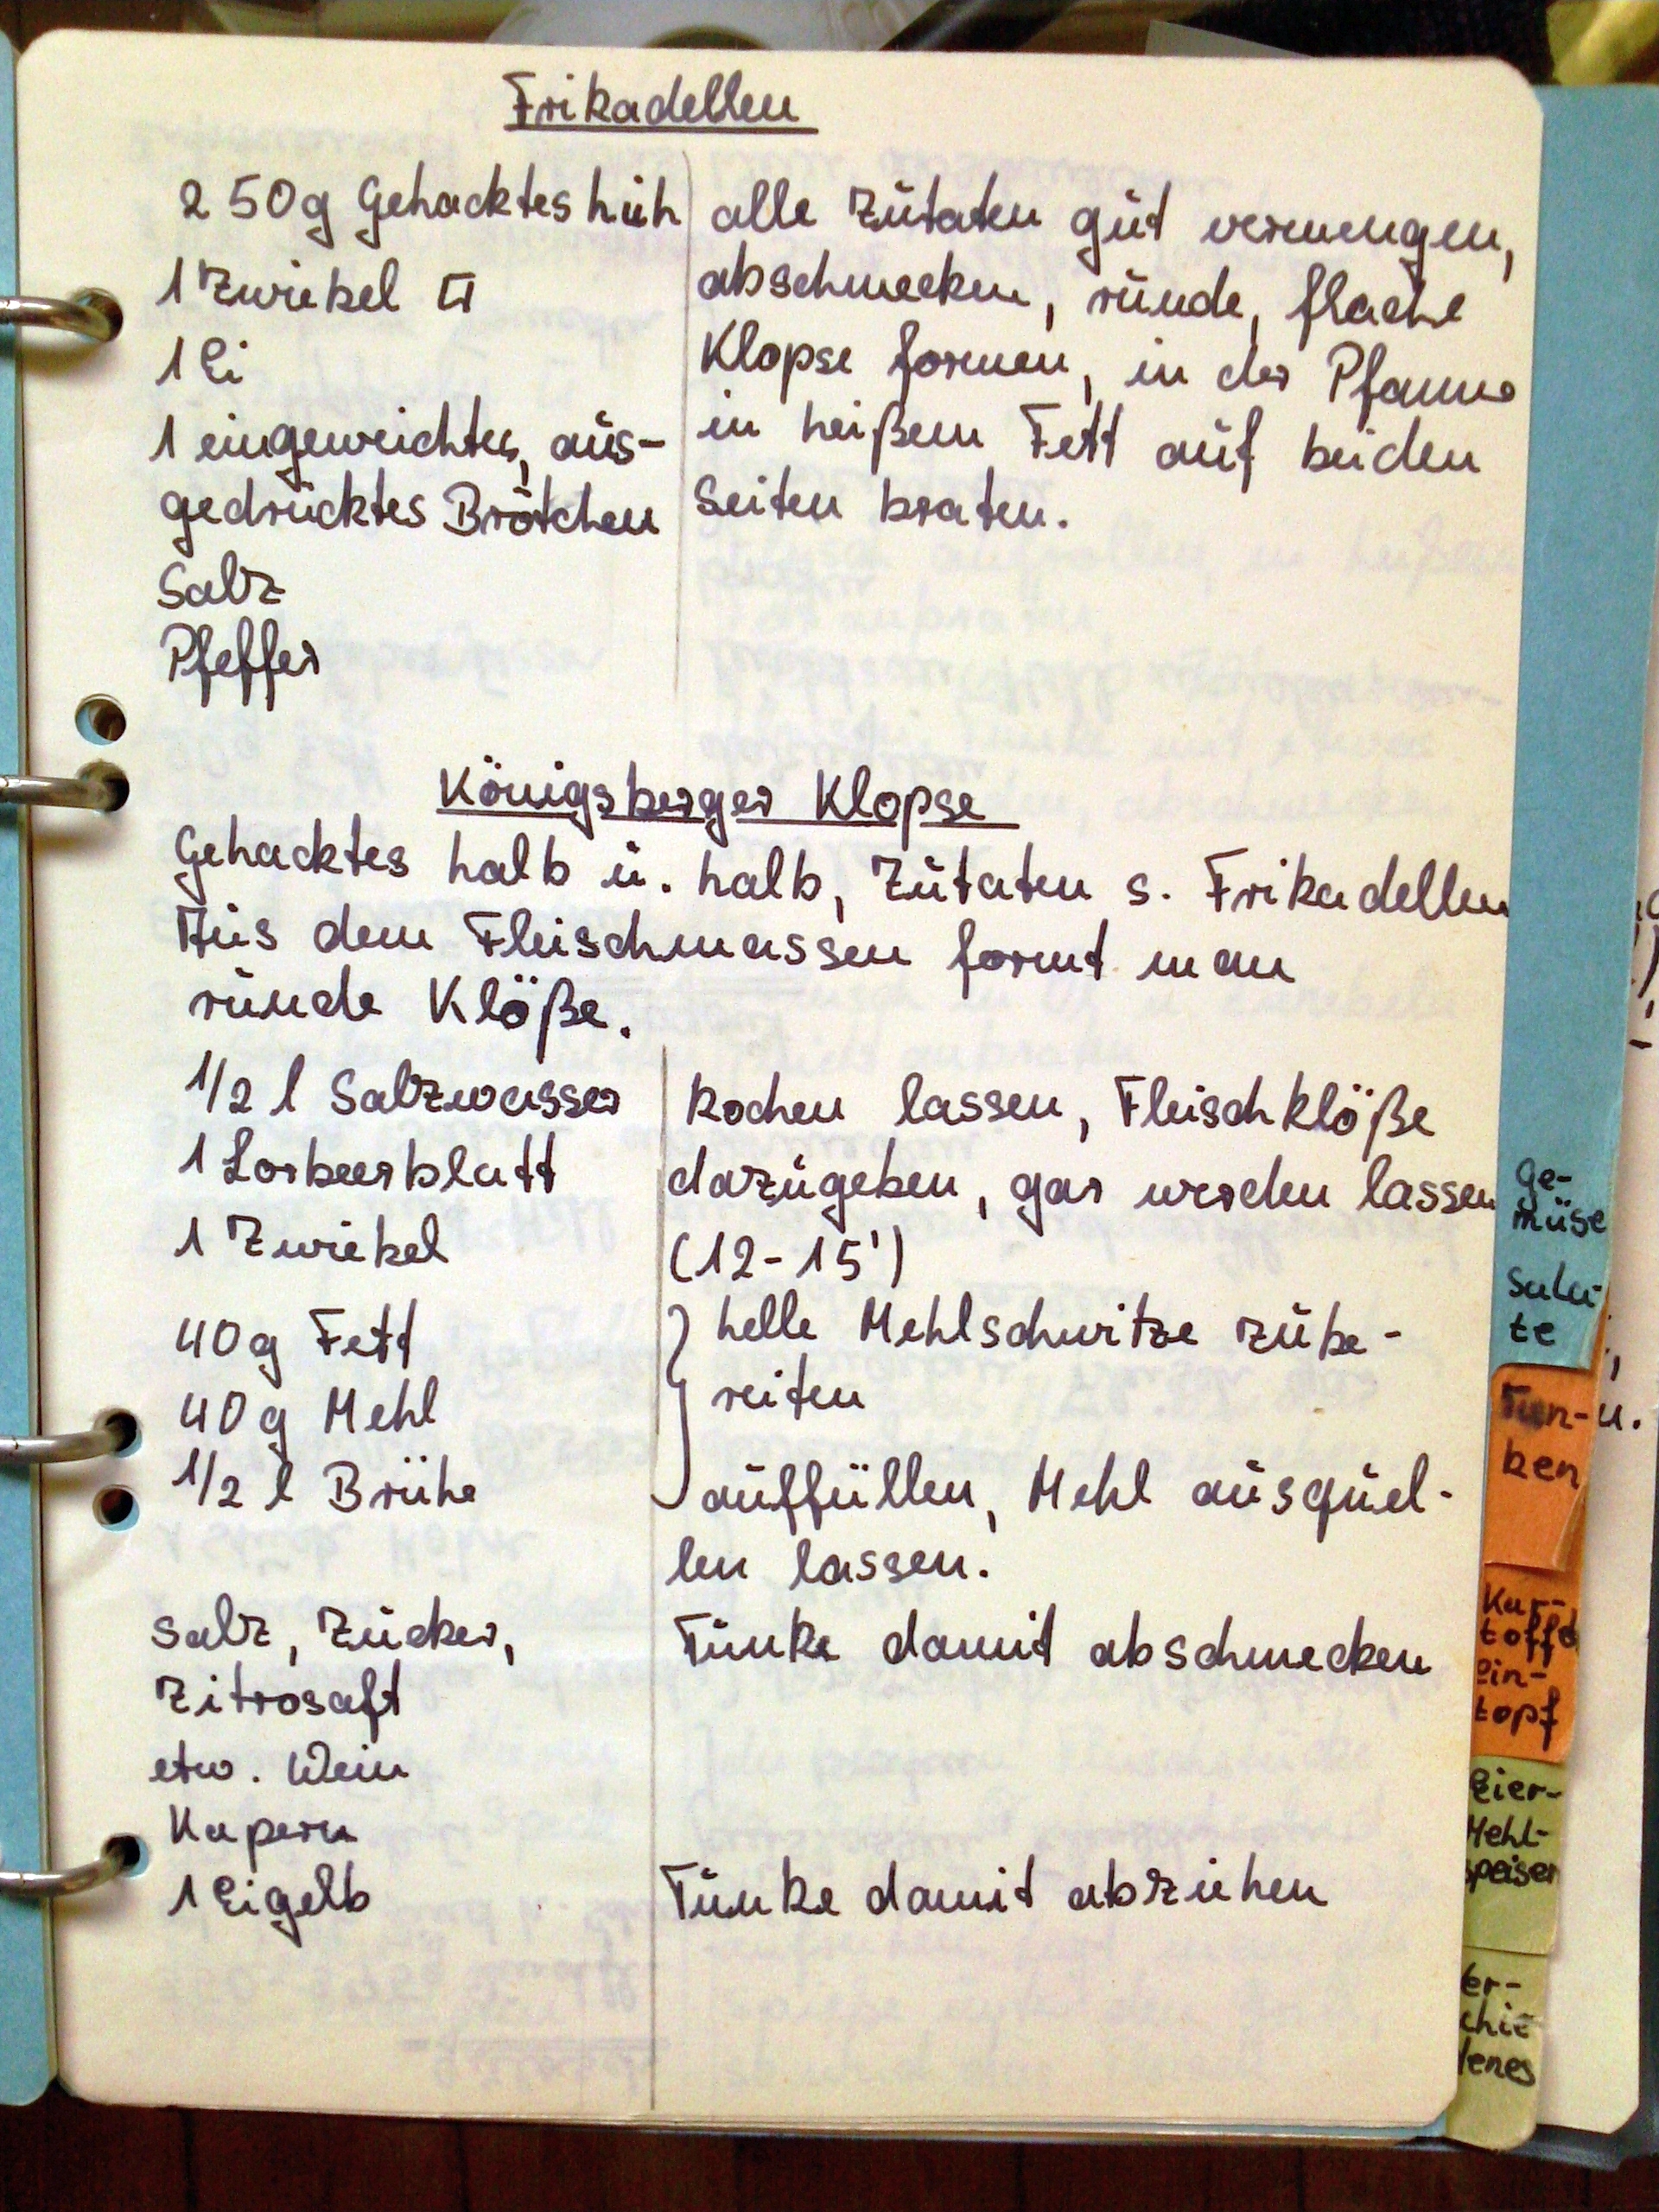 Frikadellen
250g Gehacktes h.u.h
1 Zwiebel
1 Ei
1 eingeweichtes, aus-
gedrücktes Brötchen
Salz
Pfeffer
alle Zutaten gut vermengen,
abschmecken, runde, flache
Klopse formen, in der Pfanne
in heißem Fett auf beiden
Seiten braten.
Königsberger Klopse
Gehacktes halb u. halb, Zutaten s. Frikadellen
Aus dem Fleischmassen formt man
runde Klöße.
1/2 l Salzwasser
1 Lorbeerblatt
1 Zwiebel
kochen lassen, Fleischklöße
dazugeben, gar werden lassen
(12-15')
40g Fett
40g Mehl
1/2 l Brühe
helle Mehlschwitze zube-
reiten
auffüllen, Mehl ausquel-
len lassen.
Salz, Zucker,
Zitrosaft
etw. Wein
Kapern
Tunke damit abschmecken
1 Eigelb
Tunke damit abziehen
Ge-
müse
Sala-
te
Tun-
ken
u.
Kar-
toffel
Ein-
topf
Eier-
Mehl-
speisen
Ver-
schie-
denes